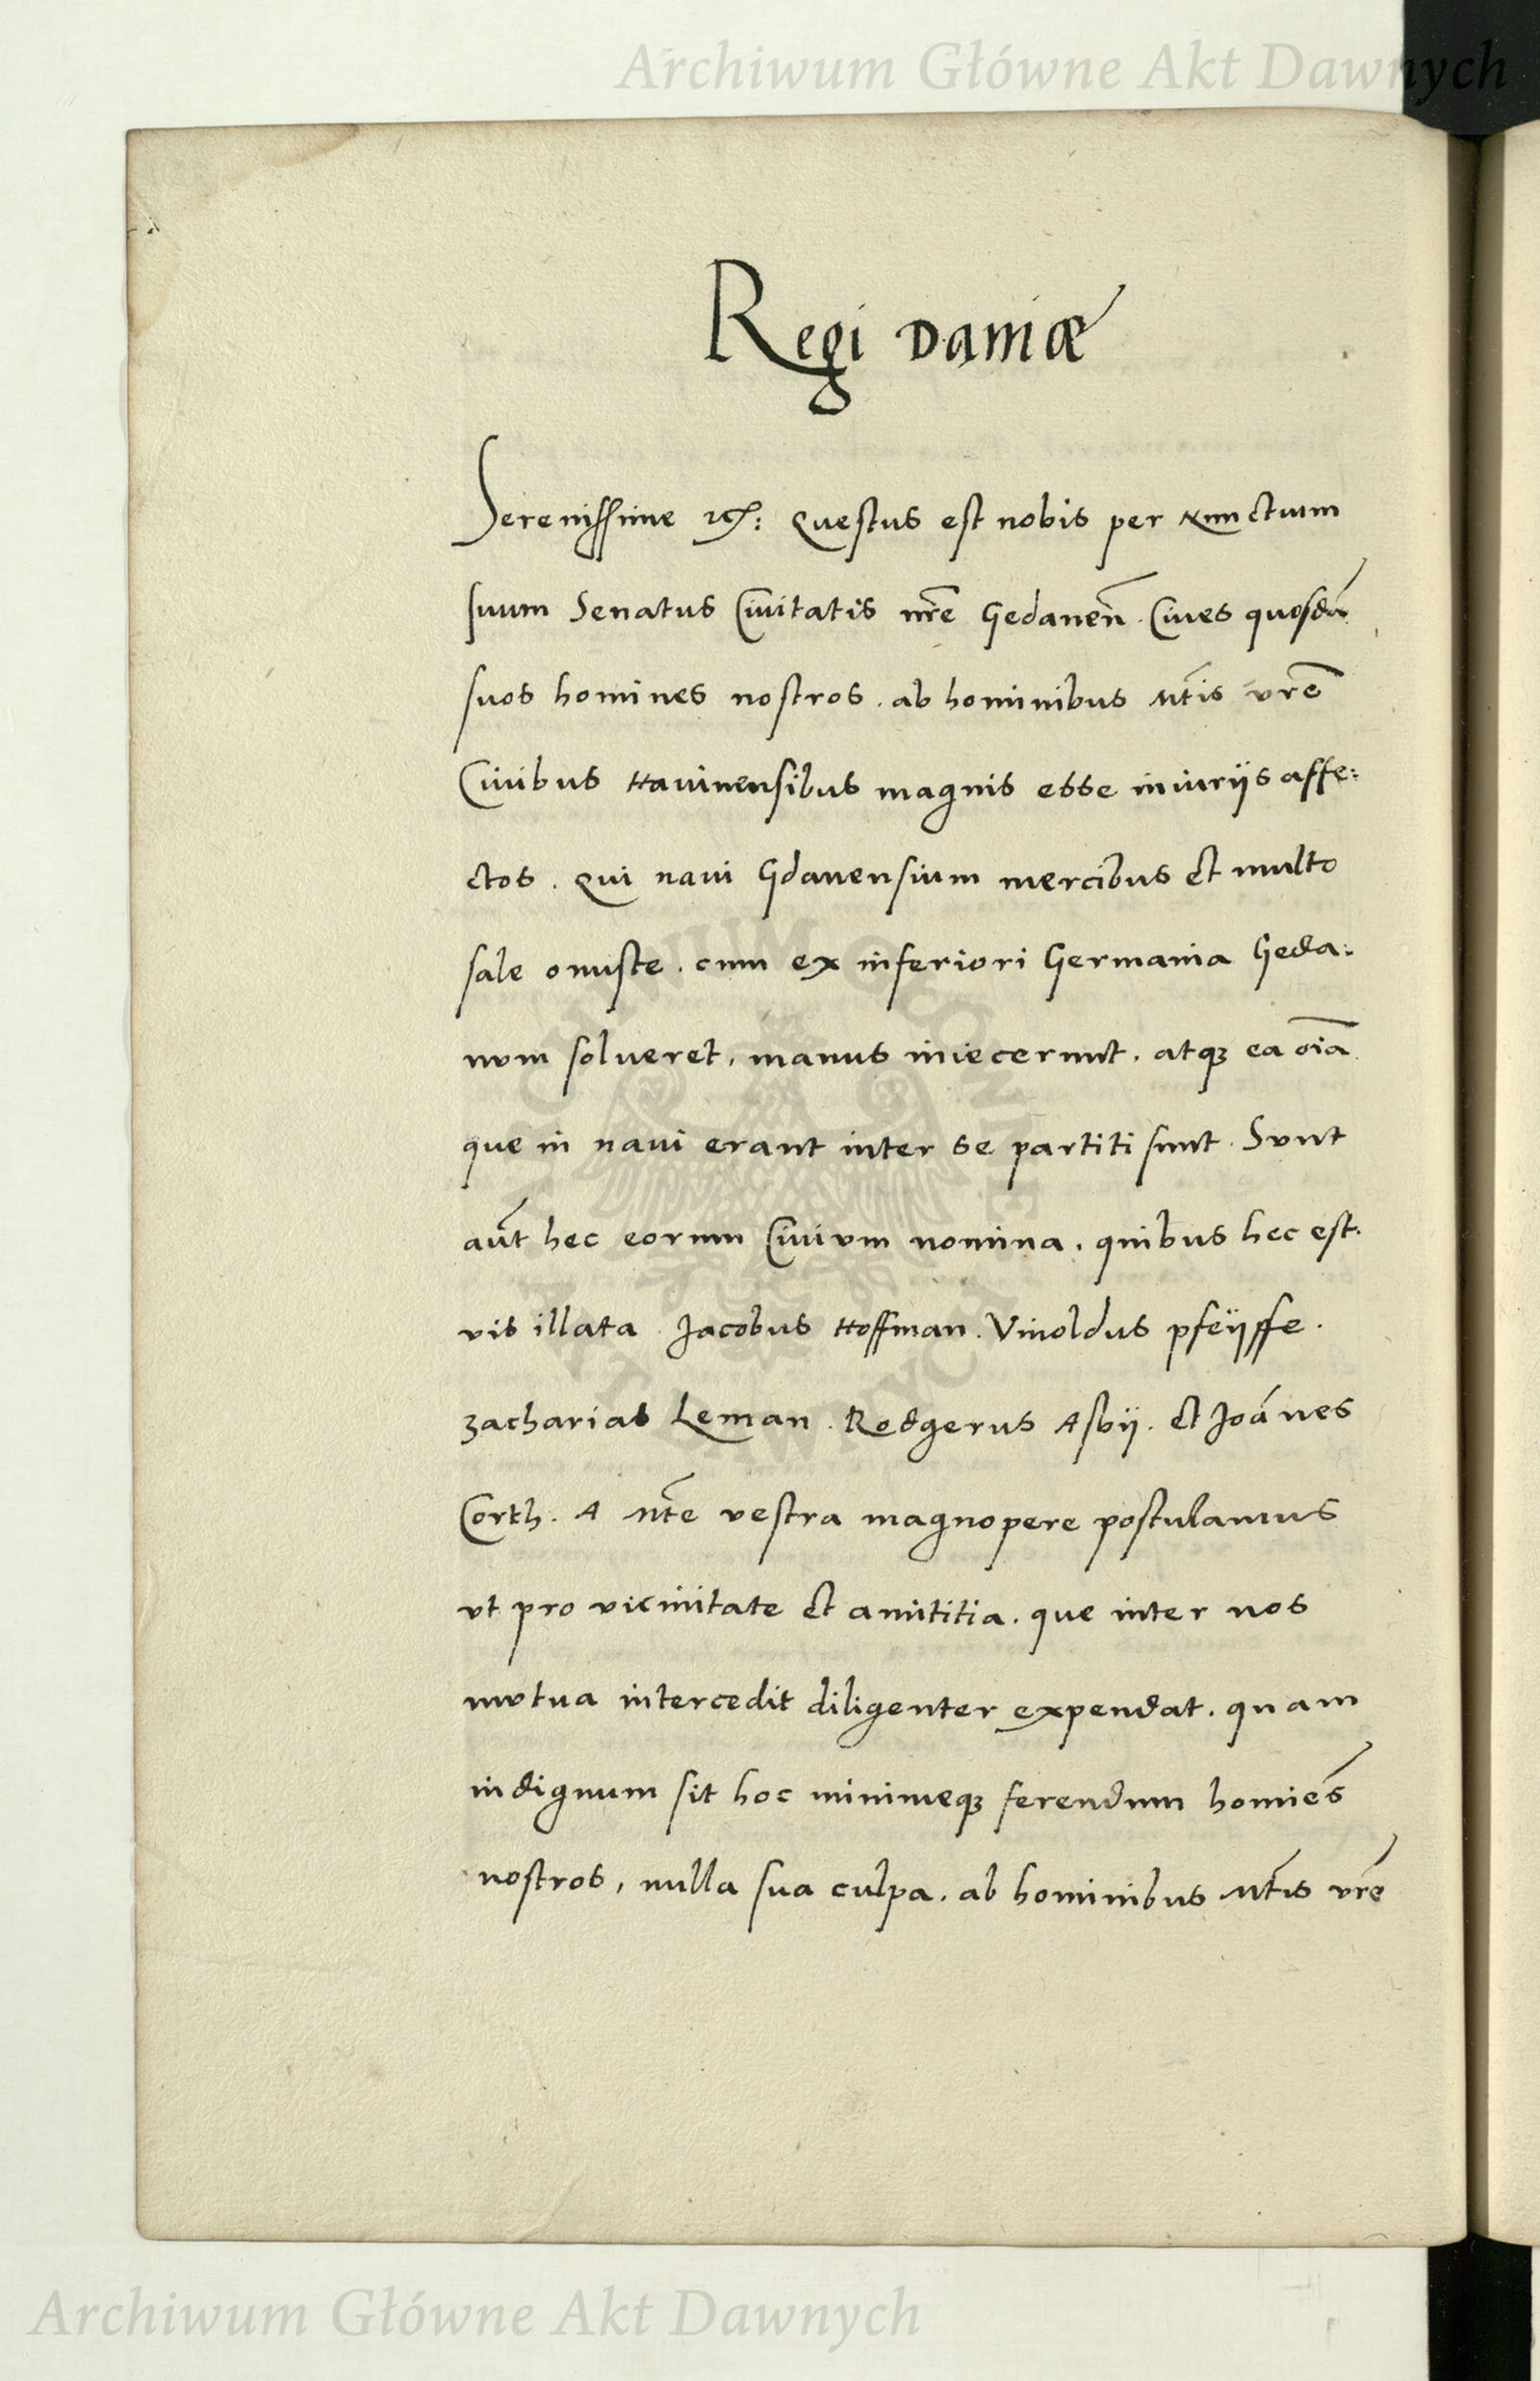 Archiwum Główne Akt Dawnych
Regi Daniæ
Serenissime rex: Questus est nobis per Nunctium
suum Senatus Civitatis nr̃e Gedaneñ. Cives quosdā
suos homines nostros. ab hominibus Mt̃is vrẽ
Civibus Havinensibus magnis esse iniurijs affe:
ctos. Qui navi Gdanensium mercibus et multo
sale onuste. cum ex inferiori Germania Geda:
num solveret, manus iniecerunt. atqʒ ea oīa
que in navi erant inter se partiti sunt. Sunt
aūt hec eorum Civium nomina. quibus hec est.
vis illata. Jacobus Hoffman. Vinoldus pfeijffe.
Zacharias Leman. Rodgerus Asbij. et Joānes
Corth. A Mt̃e vestra magnopere postulamus
vt pro vicinitate et amititia. que inter nos
mutua intercedit diligenter expendat. quam
indignum sit hoc minimeqʒ ferendum homiēs
nostros, nulla sua culpa. ab hominibus Mt̃is vrẽ
Archiwum Główne Akt Dawnych